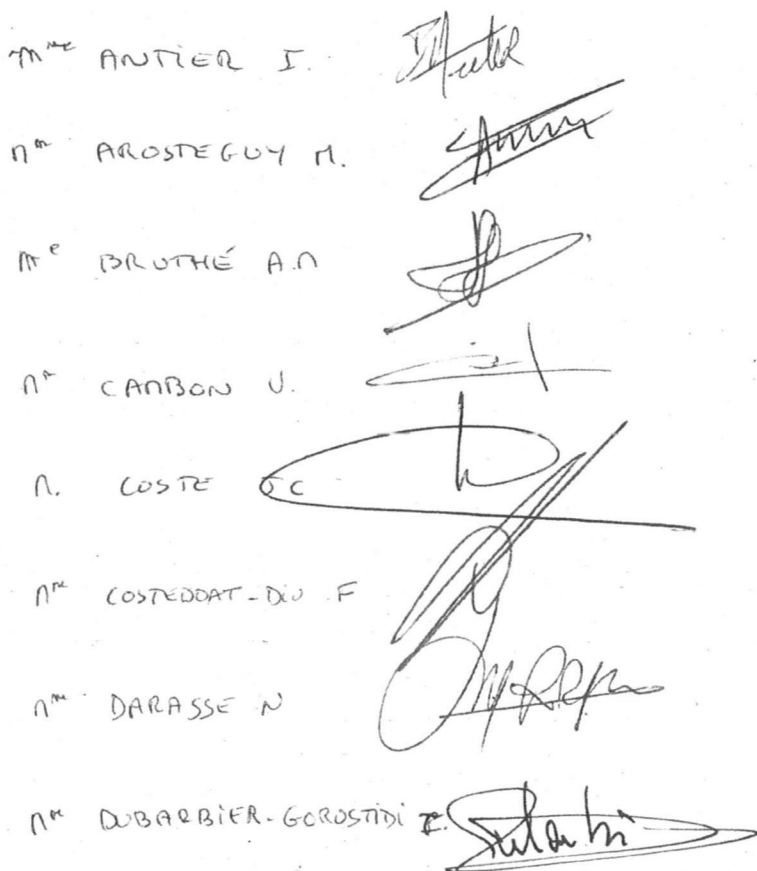 Mme ANTIER I.
Mme AROSTEGUY M.
Me BRUTHÉ A.M
Mme CAMBON V.
M. COSTE JC
Mme COSTEDOAT-DIU F
Mme DARASSE N
Mme DUBARBIER-GOROSTIDI E.